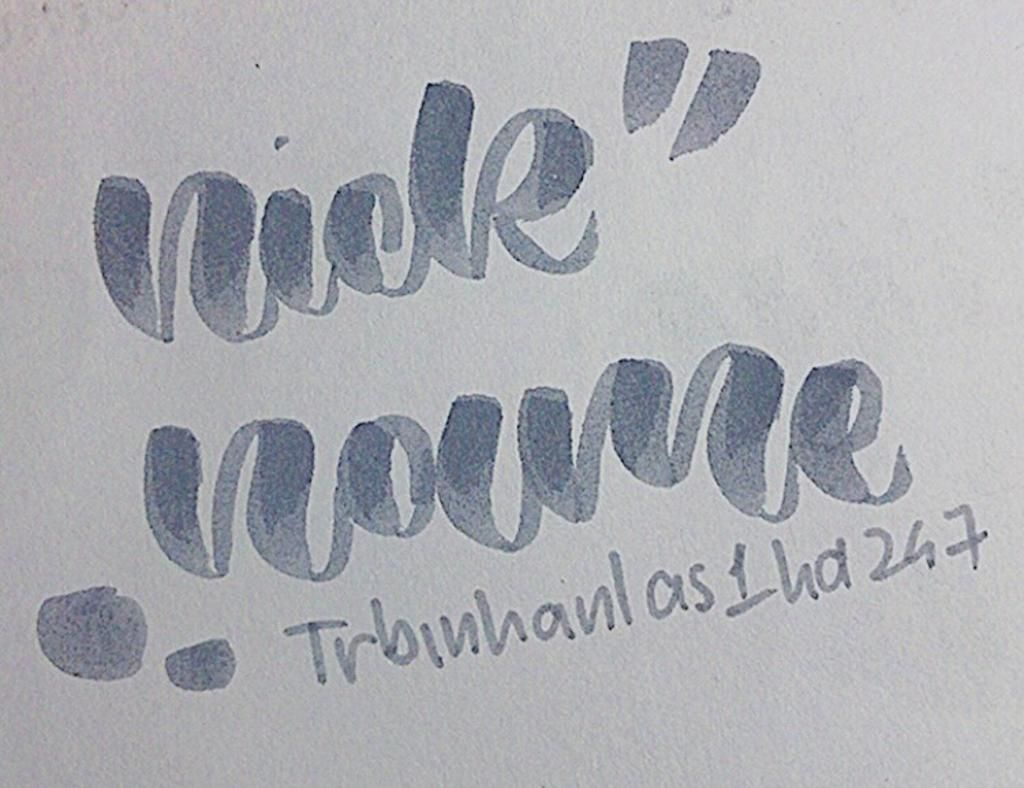 nick"
name
Trbinhanlas1hd247